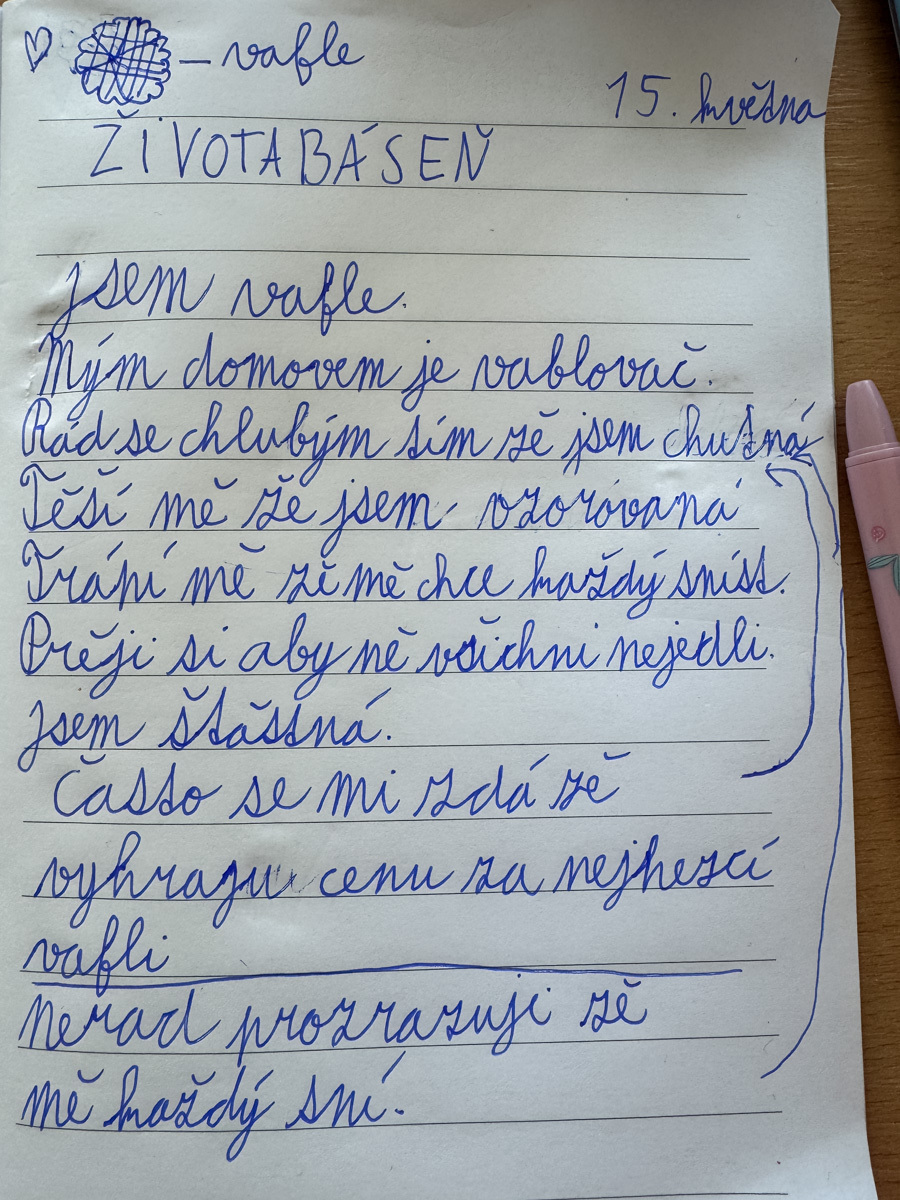 – vafle
15. května
ŽIVOTABÁSEŇ
jsem vafle.
Mým domovem je vablovač.
Rád se chlubým sím zě jsem chutná
Těší mě že jsem vzorovaná
Trápí mě zě mě chce každý sníst.
Přěji si aby mě všichni nejedli.
jsem štăstná.
Často se mi zdá zě
vyhraju cenu za nejhezcí
vafli
nerad prozrazuji zě
mě každý sní.